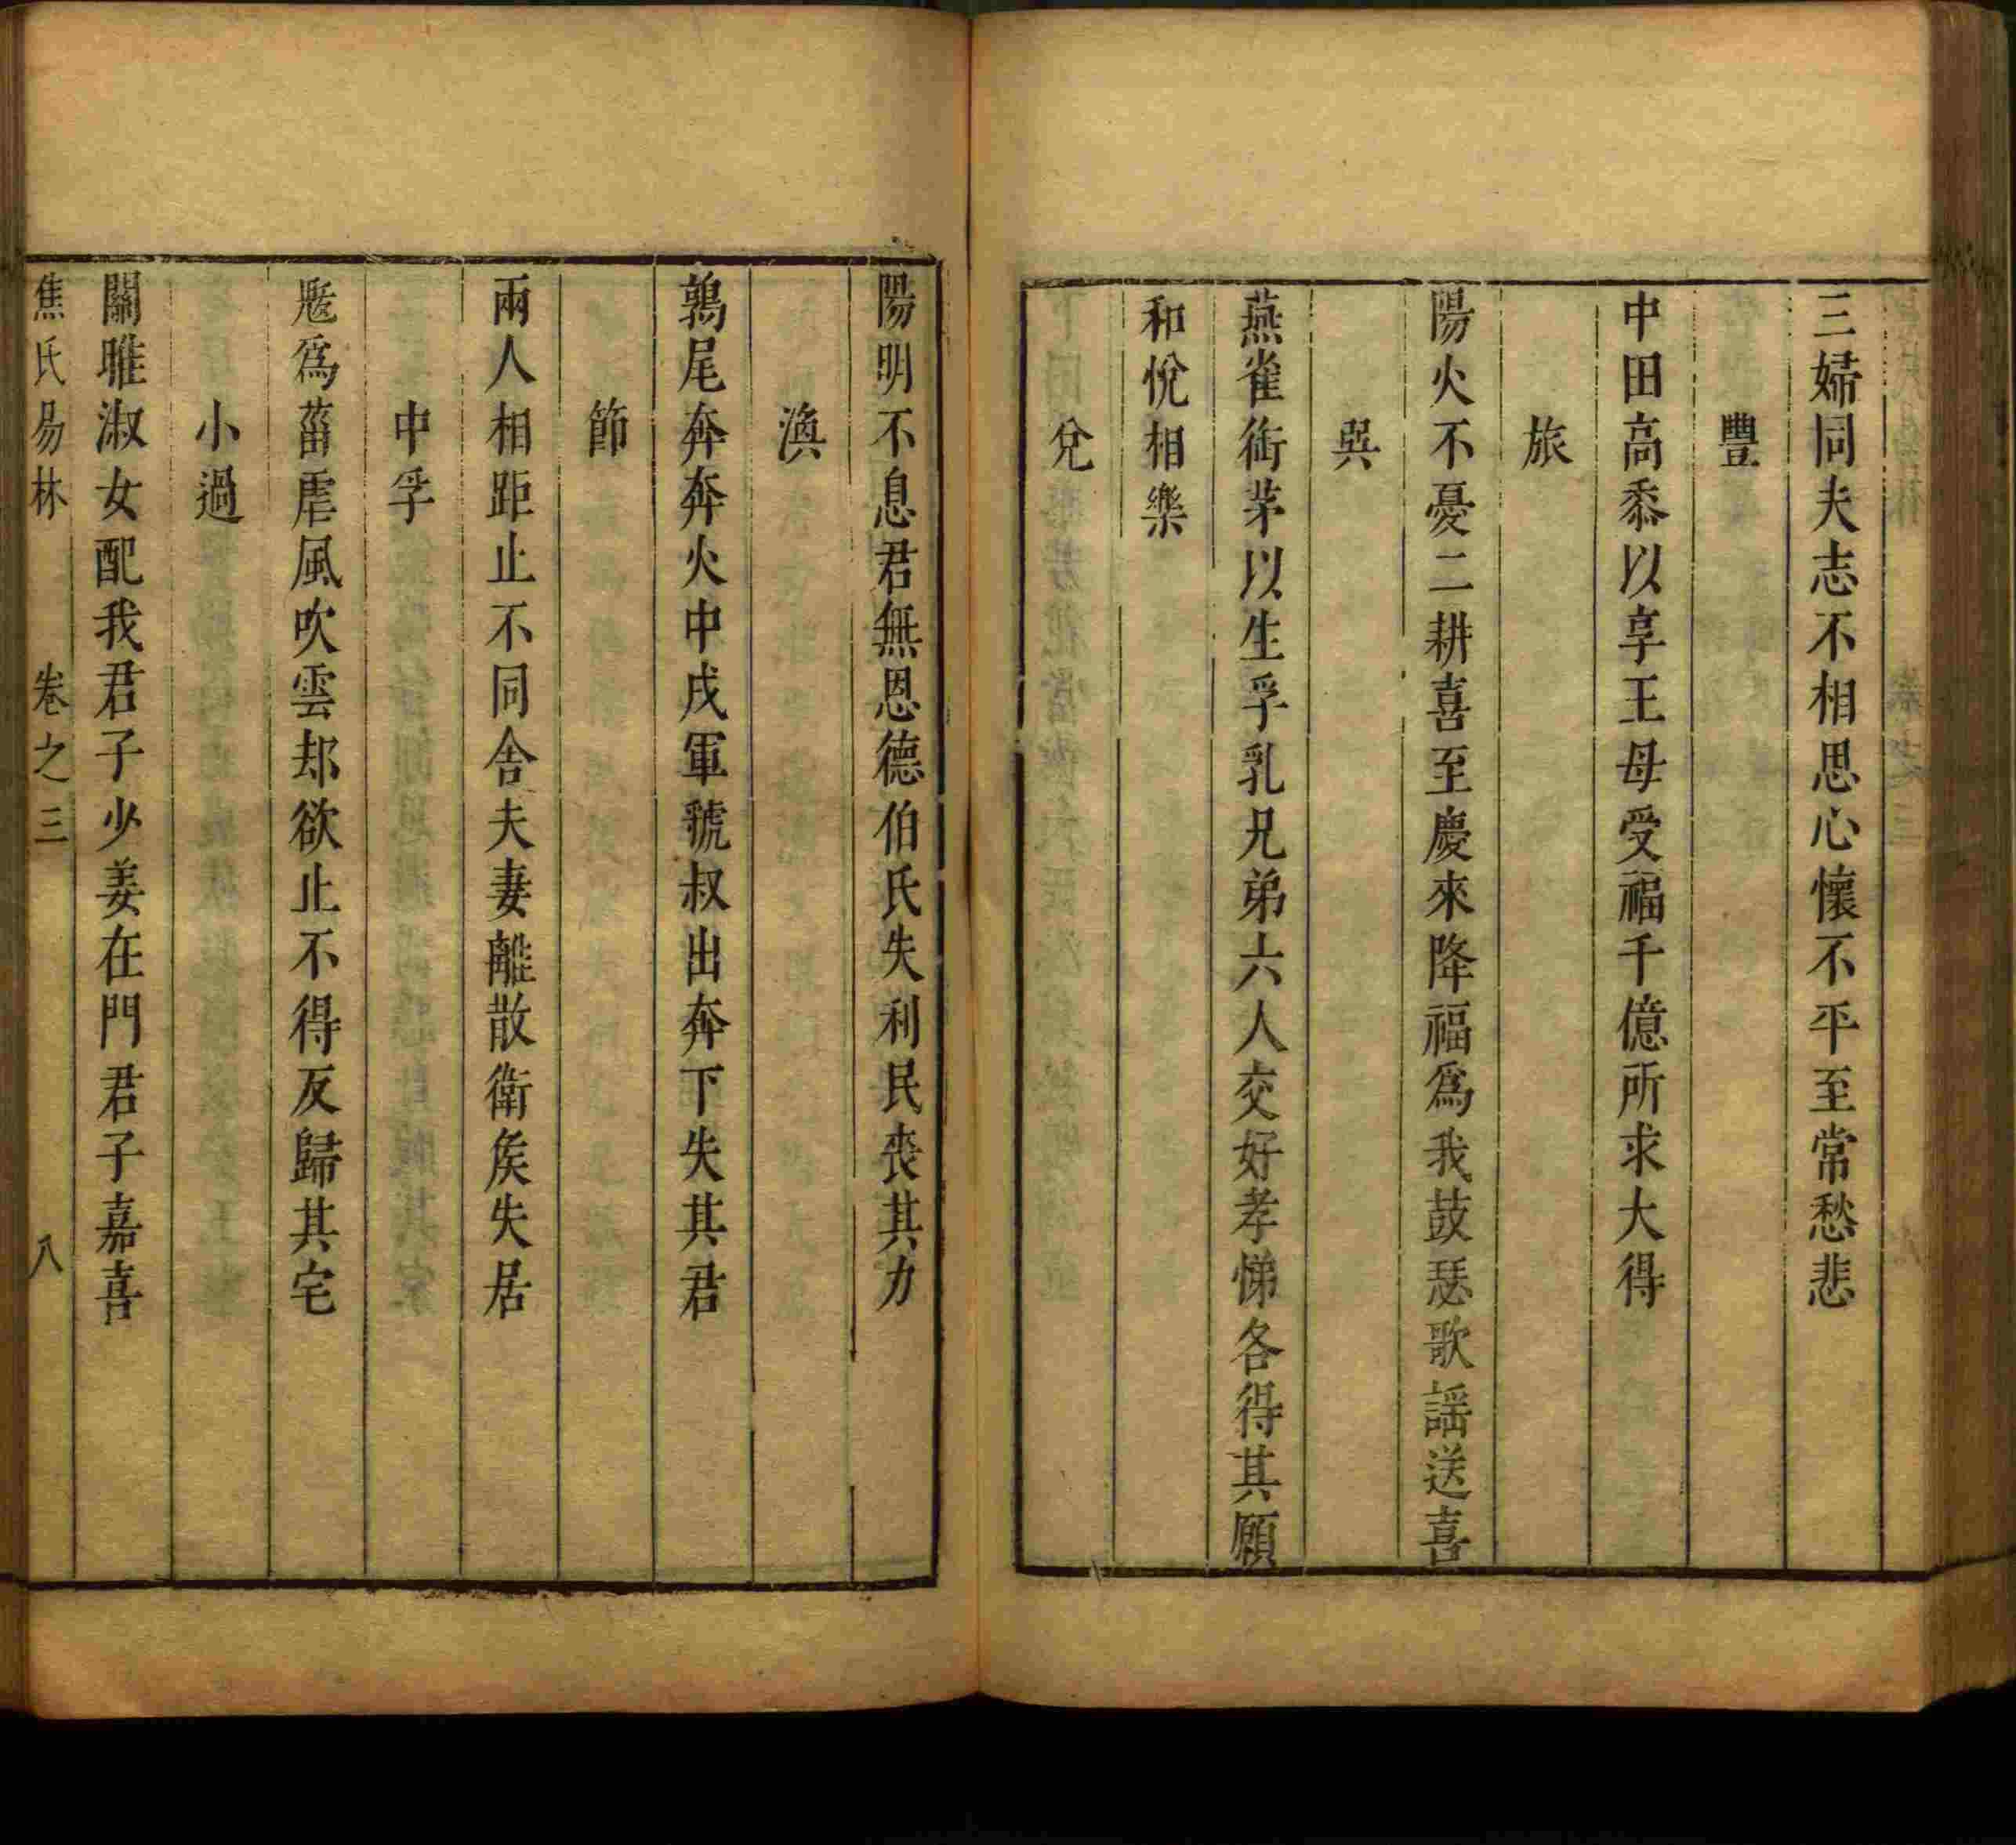 三婦同夫志不相思心懷不平至常愁悲
豐
中田高黍以享王母受福千億所求大得
旅
陽火不憂二耕喜至慶來降福爲我鼓瑟歌謡送喜
巽
燕雀衘茅以生孚乳兄弟六人交好孝悌各得其願
和悅相樂
兌
陽明不息君無恩德伯氏失利民喪其力
渙
鶉尾奔奔火中成軍虢叔出奔下失其君
節
兩人相距止不同舍夫妻離散衛矦失居
中孚
爲菑虐風吹雲却欲止不得反歸其宅
小過
關雎淑女配我君子少姜在門君子嘉喜
焦氏易林 卷之三 八